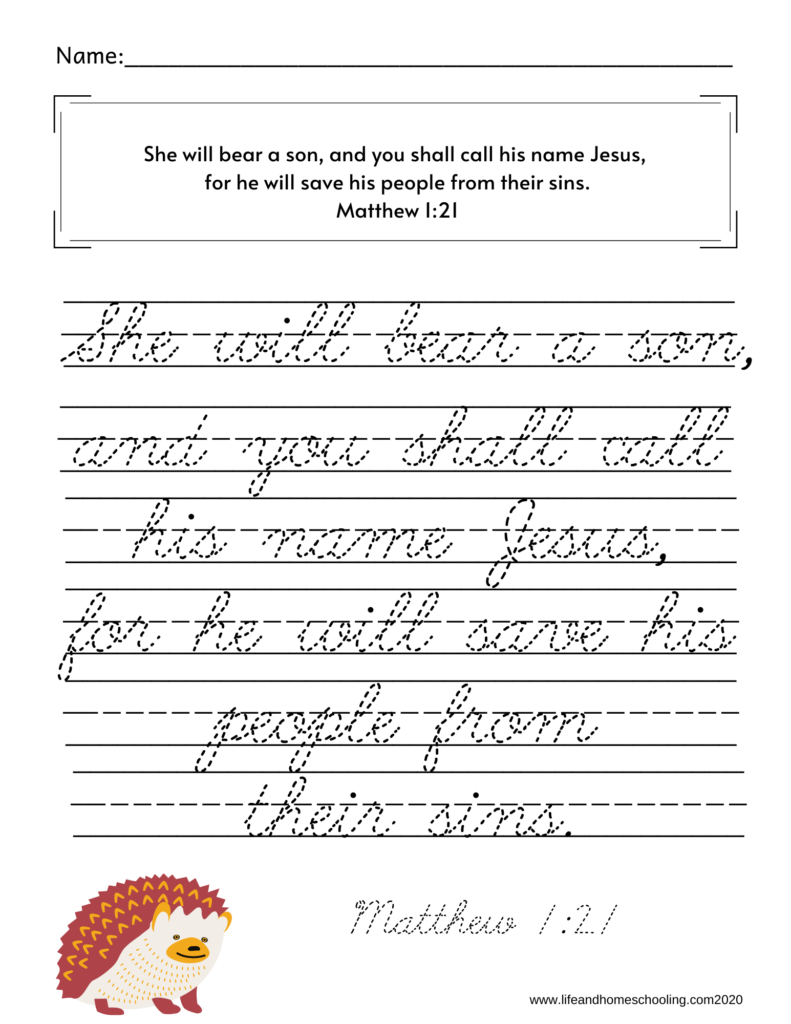 Name:
She will bear a son, and you shall call his name Jesus,
for he will save his people from their sins.
Matthew 1:21
She will bear a son,
and you shall call
his name Jesus,
for he will save his
people from
their sins.
Matthew 1:21
www.lifeandhomeschooling.com2020